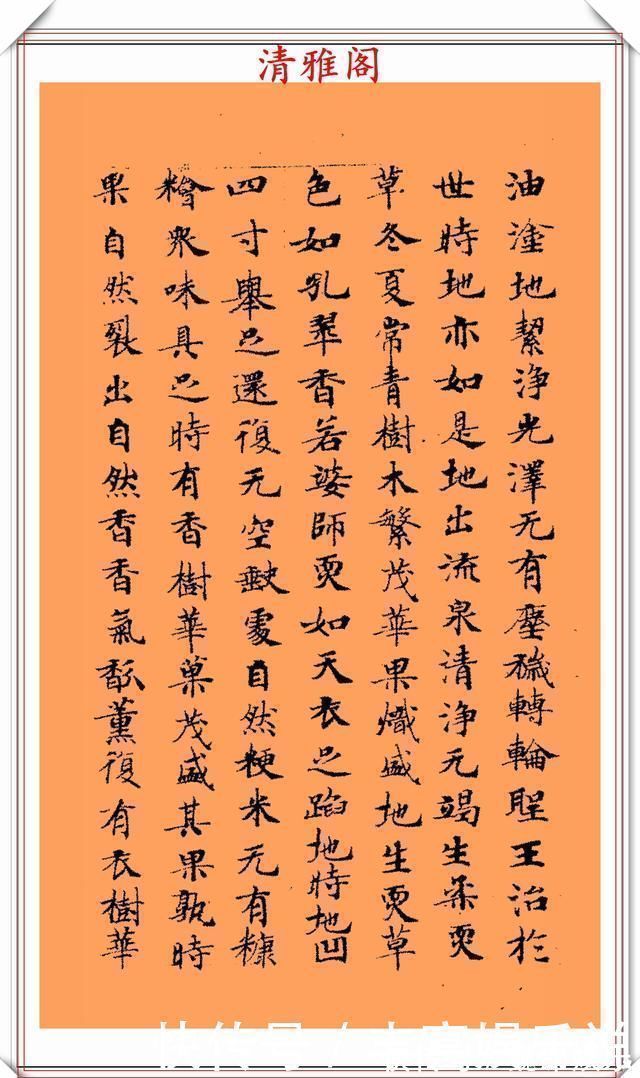 清雅阁
油塗地絜淨光澤无有塵穢轉輪聖王治於
世時地亦如是地出流泉清淨无竭生柔耎
草冬夏常青樹木繁茂華果熾盛地生耎草
色如孔翠香若婆師耎如天衣足蹈地時地凹
四寸舉足還復无空缺處自然粳米无有糠
糩衆味具足時有香樹華菓茂盛其果熟時
果自然裂出自然香香氣馚薰復有衣樹華